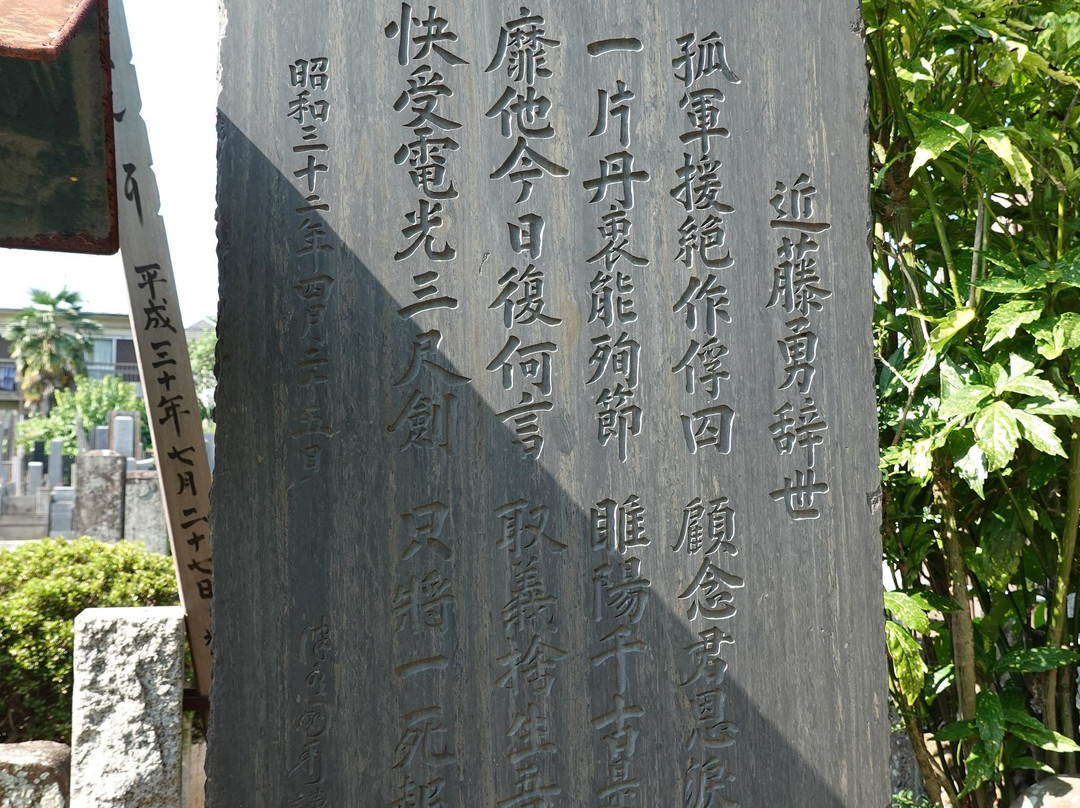 近藤勇辞世
孤軍援絶作俘囚 顧念君恩淚
一片丹衷能殉節 睢陽千古是
靡他今日復何言 取義捨生吾
快受電光三尺劍 只將一死報
昭和三十二年四月二十五日
平成三十年七月二十七日